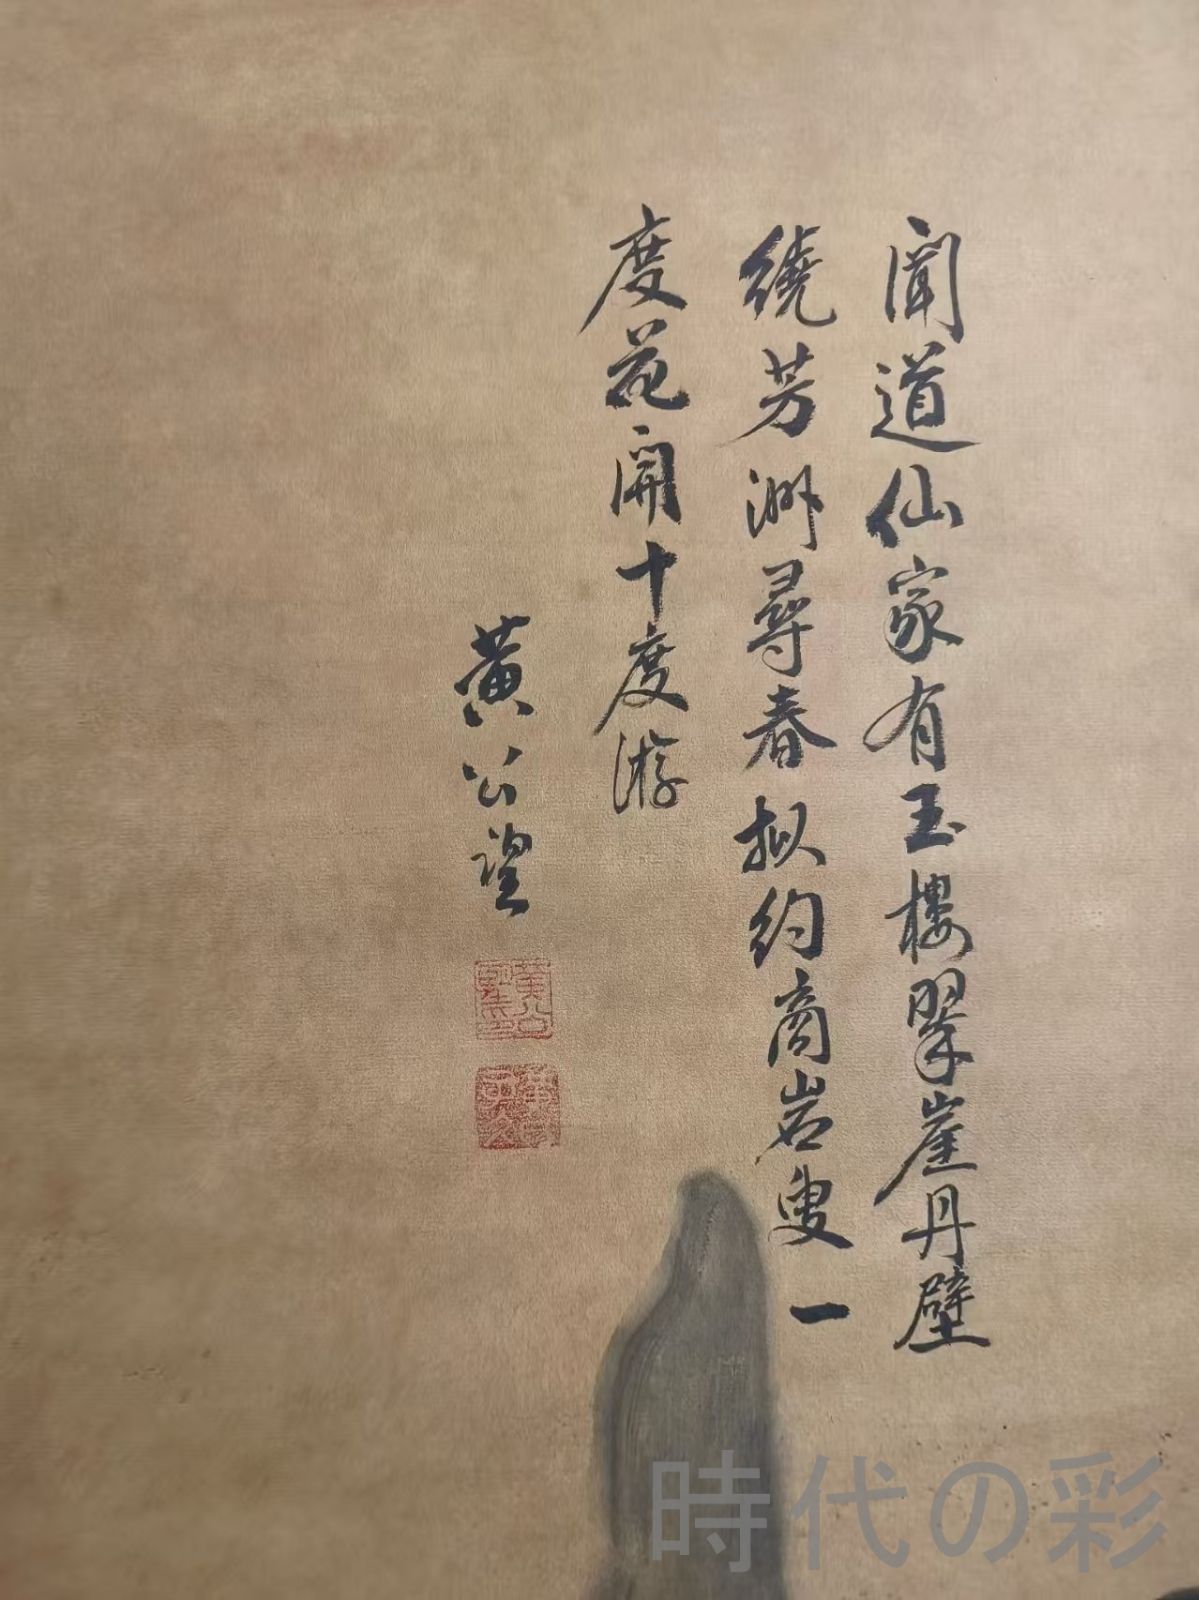 聞道仙家有玉樓翠崖丹壁
繞芳洲尋春拟約商岩叟一
度花開十度游
黃公望
時代の彩